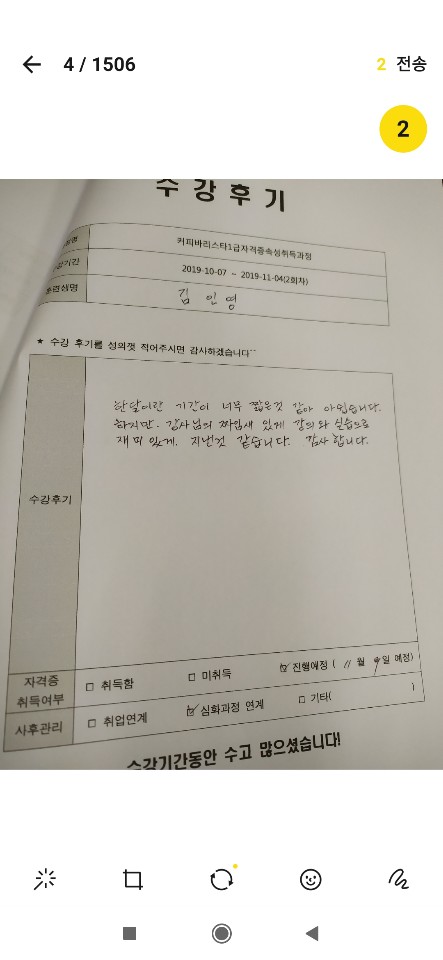 4 / 1506
2 전송
2
수강후기
커피바리스타1급자격증속성취득과정
수강기간 2019-10-07 ~ 2019-11-04(2회차)
훈련생명 김인영
★ 수강 후기를 성의껏 적어주시면 감사하겠습니다^^
수강후기
한달이란 기간이 너무 짧은것 같아 아쉽습니다.
하지만. 강사님의 짜임새 있게 강의와 실습으로
재미있게. 지낸것 같습니다. 감사합니다.
자격증 취득여부 □ 취득함 □ 미취득 ☑ 진행예정 ( 11 월 일 예정)
사후관리 □ 취업연계 ☑ 심화과정 연계 □ 기타( )
수강기간동안 수고 많으셨습니다!